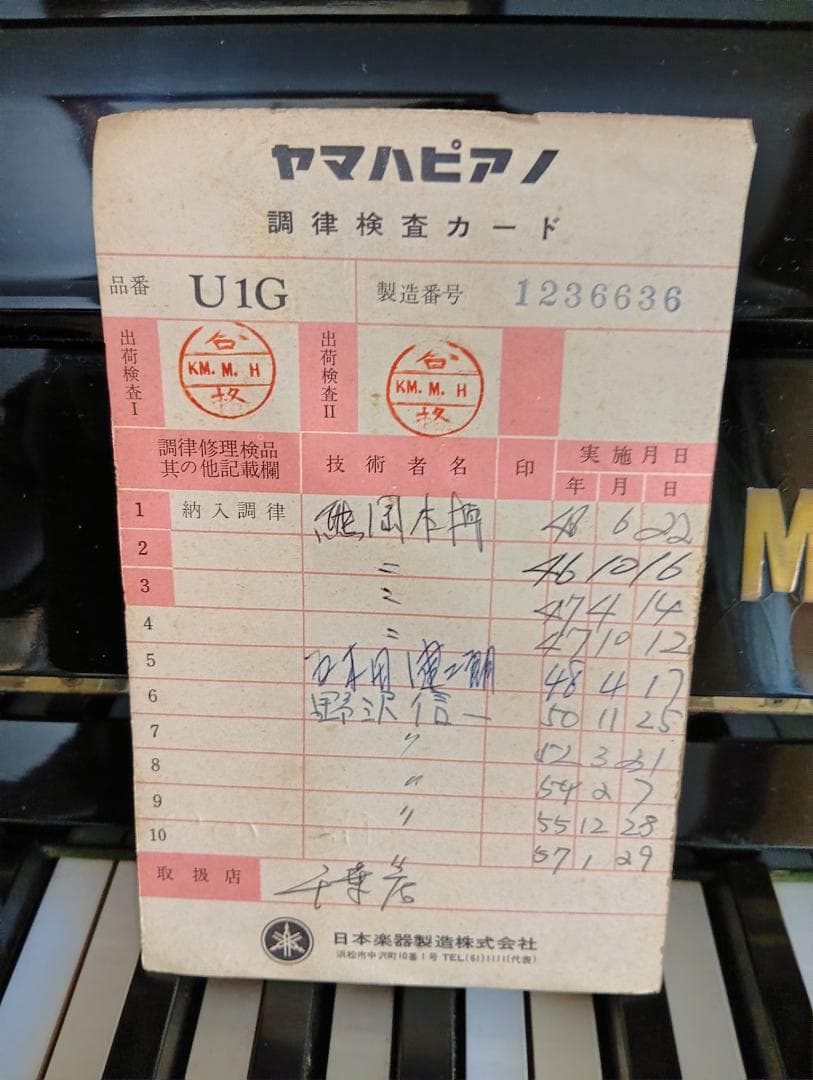 ヤマハピアノ
調律検査カード
品番 U1G 製造番号 1236636
出荷検査I 合格 KM. M. H 出荷検査II 合格 KM. M. H
調律修理検品其の他記載欄 技術者名 印 実施月日
年 月 日
1 納入調律 46 6 22
2 〃 46 10 16
3 〃 47 4 14
4 〃 47 10 12
5 48 4 17
6 野沢信一 50 11 25
7 〃 52 3 31
8 〃 54 2 7
9 〃 55 12 28
10 57 1 29
取扱店 千葉店
日本楽器製造株式会社
浜松市中沢町10番1号 TEL(61)1111(代表)
M